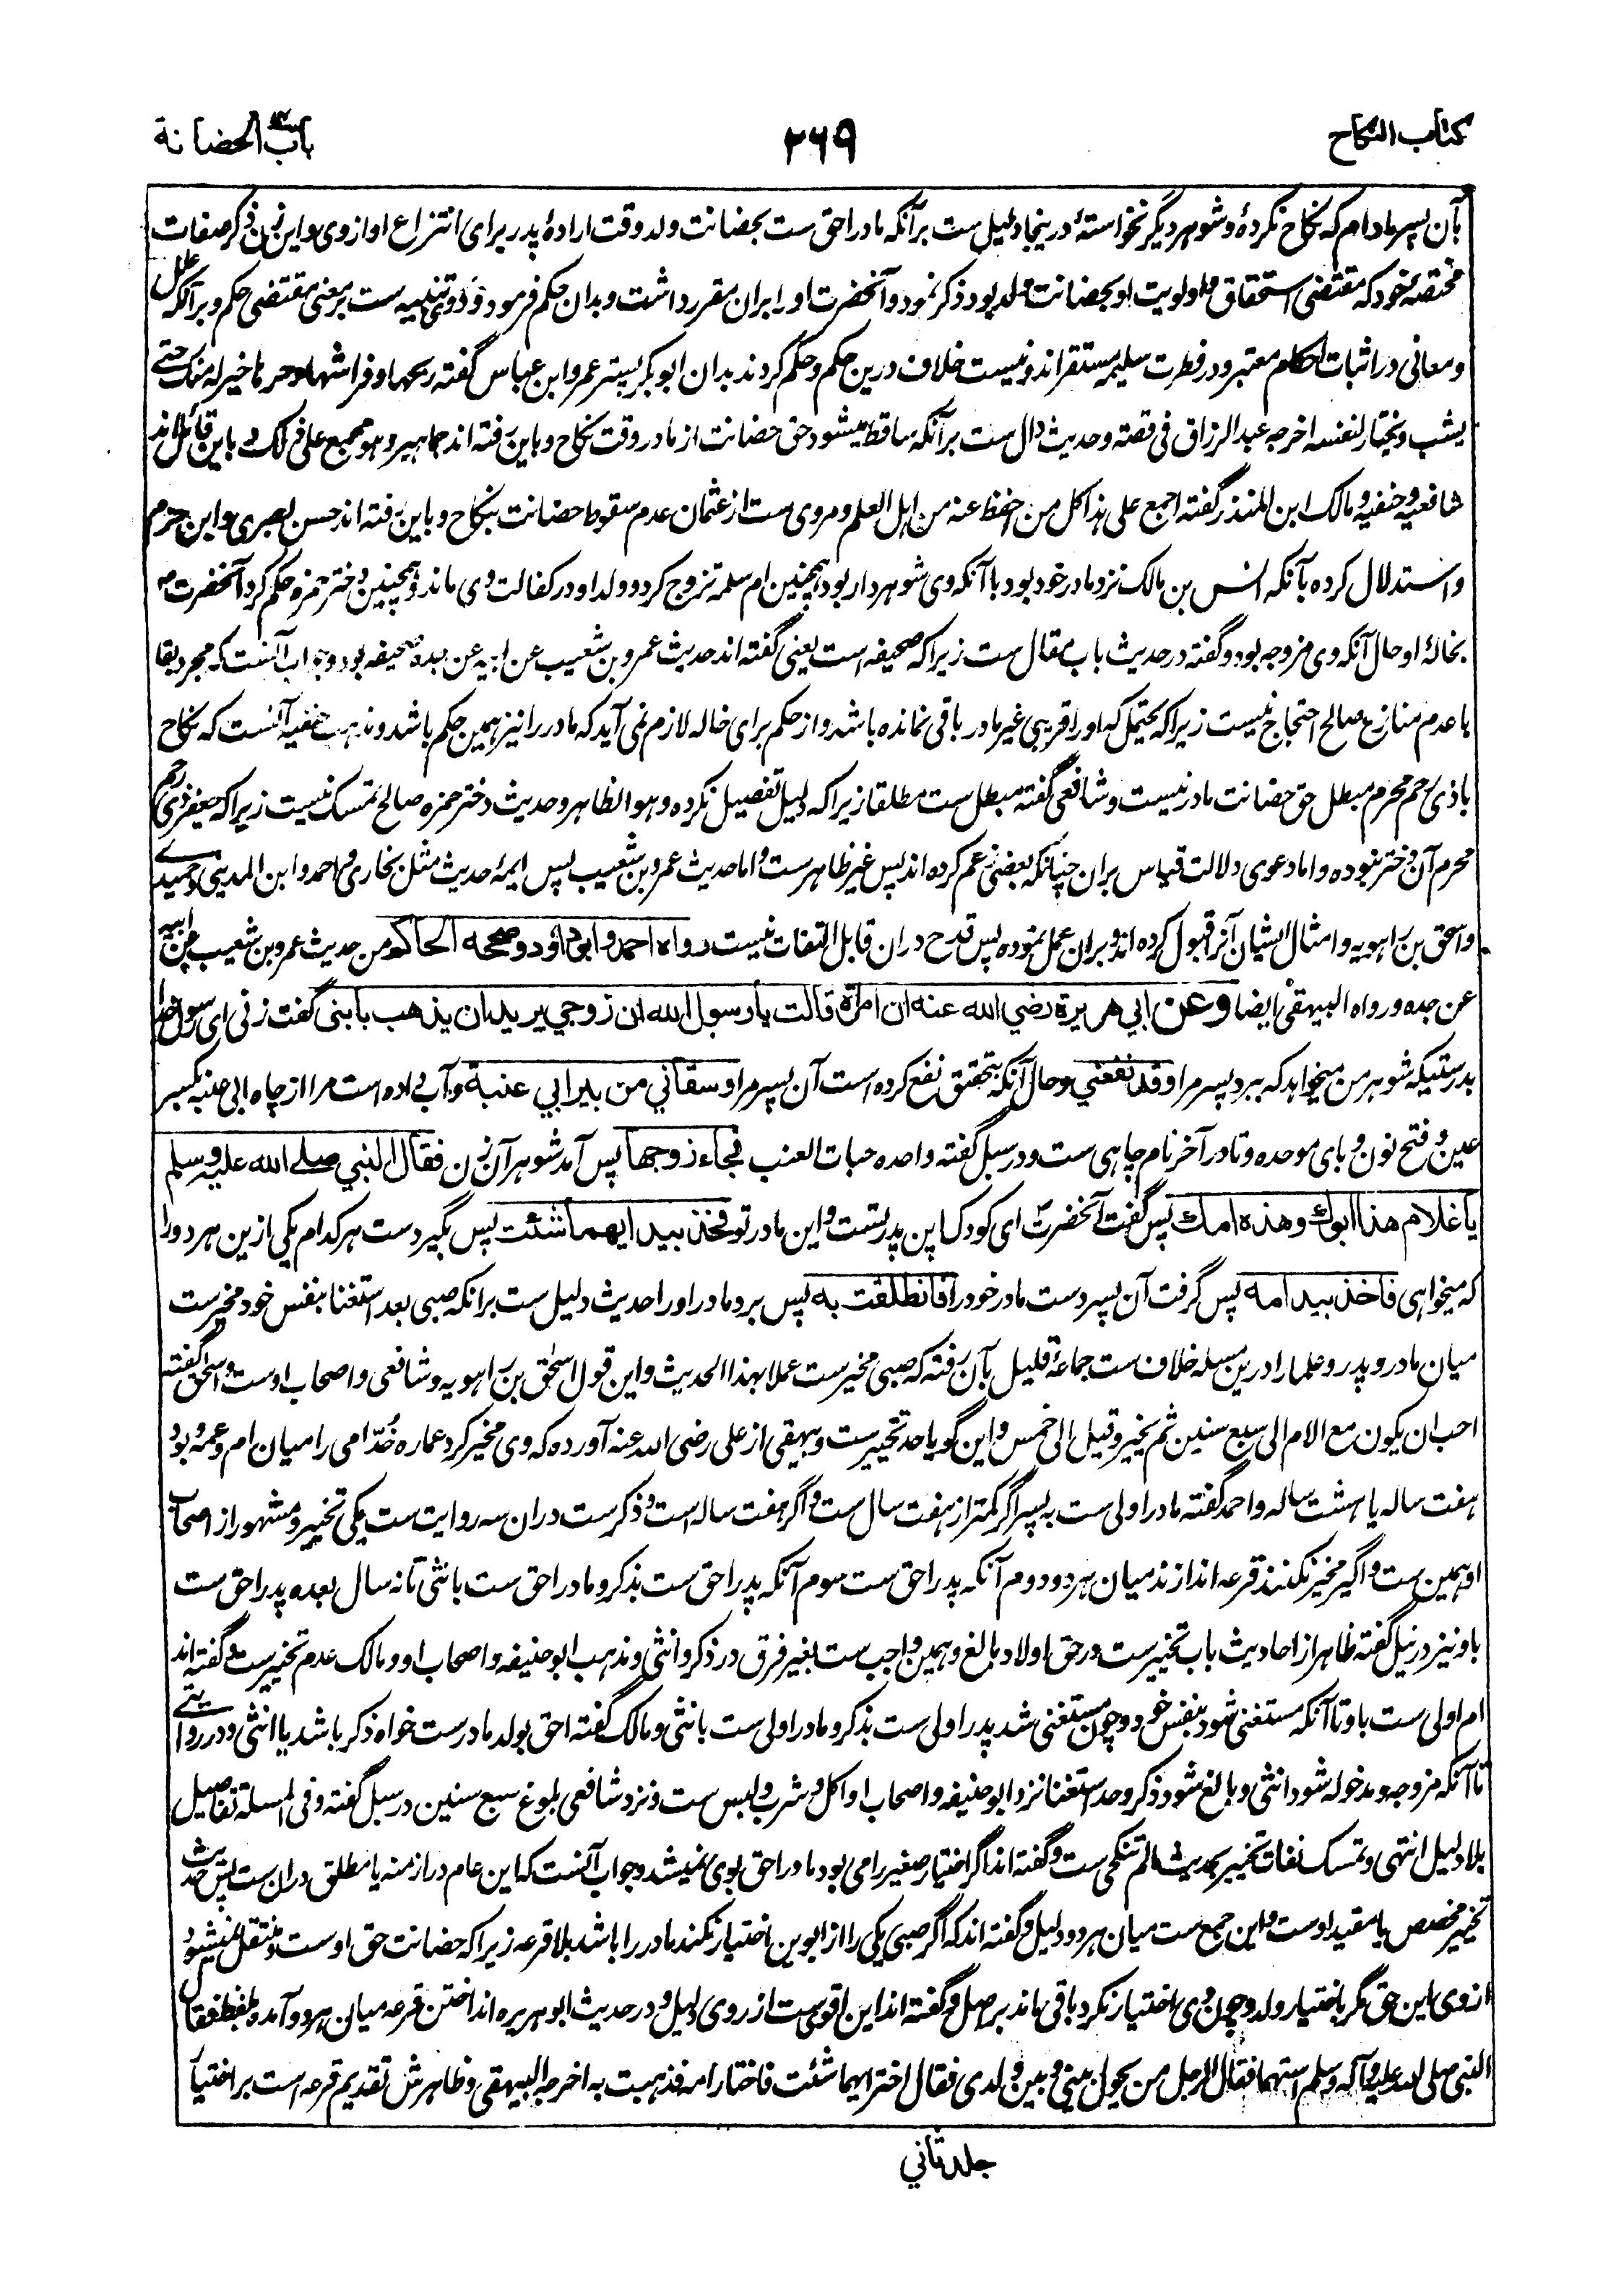 كتاب النكاح
٢٦٩
باب الحضانة
بآن پسر مادام كه نكاح نكردهٔ و شوهر ديگر نخواستهٔ درينجا دليل ست برآنكه مادر احق ست بحضانت ولد وقت ارادهٔ پدر براى انتزاع او از وى و اين زن ذكر صفات
مختصه بخود كه مقتضى استحقاق و اولويت او بحضانت ولد بود ذكر نمود و آنحضرت او را بران مقرر داشت و بدان حكم فرمود و درو تنبيه ست بر معنى مقتضى حكم و برآنكه علل
و معانى در اثبات احكام معتبر و در فطرت سليمه مستقر اند و نيست خلاف درين حكم و حكم كردند بدان ابوبكر پستر عمر و ابن عباس گفته ريحها و فراشها و حرها خير له منك حتى
يشب و يختار لنفسه اخرجه عبد الرزاق فى قصته و حديث دال ست برآنكه ساقط ميشود حق حضانت از مادر وقت نكاح و باين رفته اند جماهير و هو مجمع على ذلك و باين قائل اند
شافعيه و حنفيه و مالك ابن المنذر گفته اجمع على هذا كل من احفظ عنه من اهل العلم و مروى ست از عثمان عدم سقوط حضانت بنكاح و باين رفته اند حسن بصرى و ابن حزم
و استدلال كرده بآنكه انس بن مالك نزد مادر خود بود با آنكه وى شوهردار بود همچنين ام سلمه تزوج كرد و ولد او در كفالت وى ماند و همچنين دختر حمزه حكم كرد آنحضرت صـ
بخالهٔ او حال آنكه وى مزوجه بود و گفته در حديث باب مقال ست زيرا كه صحيفه است يعنى گفته اند حديث عمرو بن شعيب عن ابيه عن جده صحيفه بود و جواب آنست كه مجرد بقا
با عدم منازع صالح احتجاج نيست زيرا كه يحتمل كه او را قريبى غير مادر باقى نمانده باشد و از حكم براى خاله لازم نمى آيد كه مادر را نيز همين حكم باشد و مذهب حنفيه آنست كه نكاح
با ذى رحم محرم مبطل حق حضانت مادر نيست و شافعى گفته مبطل ست مطلقا زيرا كه دليل تفصيل نكرده و هو الظاهر و حديث دختر حمزه صالح تمسك نيست زيرا كه جعفر ذى رحم
محرم آن دختر نبوده و اما دعوى دلالت قياس بران چنانكه بعضى زعم كرده اند پس غير ظاهر ست و اما حديث عمرو بن شعيب پس ايمهٔ حديث مثل بخارى و احمد و ابن المدينى و حميدى
و اسحق بن راهويه و امثال ايشان آنرا قبول كرده اند و بران عمل نموده پس قدح دران قابل التفات نيست رواه احمد و ابوداود و صححه الحاكم من حديث عمرو بن شعيب عن ابيه
عن جده و رواه البيهقى ايضا وعن ابي هريرة رضي الله عنه ان امرأة قالت يا رسول الله ان زوجي يريد ان يذهب بابني گفت زنى اى رسول خدا
بدرستيكه شوهر من ميخواهد كه ببرد پسر مرا وقد نفعني و حال آنكه بتحقيق نفع كرده است آن پسر مرا وسقاني من بير ابي عنبة و آب داده است مرا از چاه ابى عنبه بكسر
عين و فتح نون و باى موحده و تا در آخر نام چاهى ست و در سبل گفته واحده حبات العنب فجاء زوجها پس آمد شوهر آن زن فقال النبي صلى الله عليه وسلم
يا غلام هذا ابوك وهذه امك پس گفت آنحضرت اى كودك اين پدر تست و اين مادر تو فخذ بيد ايهما شئت پس بگير دست هر كدام يكى ازين هر دو را
كه ميخواهى فاخذ بيد امه پس گرفت آن پسر دست مادر خود را فانطلقت به پس برد مادر او را حديث دليل ست برانكه صبى بعد استغنا بنفس خود مخير ست
ميان مادر و پدر و علما را درين مسئله خلاف ست جماعهٔ قليل بآن رفته كه صبى مخير ست عملا بهذا الحديث و اين قول اسحٰق بن راهويه و شافعى و اصحاب اوست و اسحٰق گفته
احب ان يكون مع الام الى سبع سنين ثم يخير و قيل الى خمس و اين گويا حد تخيير ست و بيهقى از على رضى الله عنه آورده كه وى مخير كرد عماره خُدّامى را ميان ام و عمه و بود
هفت ساله يا هشت ساله و احمد گفته مادر اولى ست به پسر اگر كمتر از هفت سال ست و اگر هفت ساله است و ذكر ست دران سه روايت ست يكى تخيير و مشهور از اصحاب
او همين ست و اگر مخير نكنند قرعه اندازند ميان هر دو دوم آنكه پدر احق ست سوم آنكه پدر احق ست بذكر و مادر احق ست بانثى تا نه سال بعده پدر احق ست
باو نيز در نيل گفته ظاهر از احاديث باب تخيير ست در حق اولاد بالغ و همين واجب ست بغير فرق در ذكر و انثى و مذهب ابوحنيفه و اصحاب او و مالك عدم تخيير ست و گفته اند
ام اولى ست باو تا آنكه مستغنى شود بنفس خود و چون مستغنى شد پدر اولى ست بذكر و مادر اولى ست بانثى و مالك گفته احق بولد مادر ست خواه ذكر باشد يا انثى و در روايتے
تا آنكه مزوجه و مدخوله شود انثى و بالغ شود ذكر و حد استغنا نزد ابوحنيفه و اصحاب او اكل و شرب و لبس ست و نزد شافعى بلوغ سبع سنين در سبل گفته و فى المسئلة تفاصيل
بلا دليل انتهى و تمسك نفات تخيير بحديث ما لم تنكحى ست و گفته اند اگر اختيار صغير را مى بود مادر احق بوى نميشد و جواب آنست كه اين عام در ازمنه يا مطلق دران ست پس حديث
تخيير مخصص يا مقيد اوست و اين جمع ست ميان هر دو دليل و گفته اند كه اگر صبى يكى را از ابوين اختيار نكند مادر را باشد بلا قرعه زيرا كه حضانت حق اوست و منتقل نميشود
از وى اين حق مگر باختيار ولد و چون وى اختيار نكرد باقى ماند بر اصل و گفته اند اين اقوى ست از روى دليل و در حديث ابوهريره انداختن قرعه ميان هر دو آمده بلفظ فقال
النبى صلى الله عليه و آله وسلم استهما فقال الرجل من يحول بينى و بين ولدى فقال اختر ايهما شئت فاختار امه فذهبت به اخرجه البيهقى و ظاهرش تقديم قرعه است بر اختيار
جلد ثاني